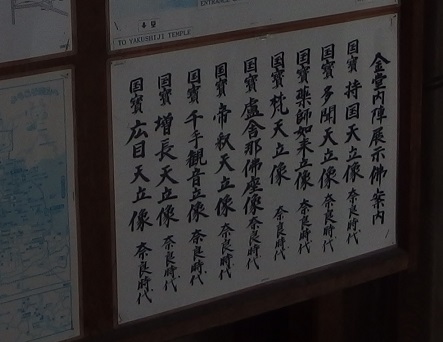 金堂内陣展示佛案内
国寶 持国天立像 奈良時代
国寶 多聞天立像 奈良時代
国寶 薬師如来立像 奈良時代
国寶 梵天立像 奈良時代
国寶 盧舎那佛座像 奈良時代
国寶 帝釈天立像 奈良時代
国寶 千手観音立像 奈良時代
国寶 増長天立像 奈良時代
国寶 広目天立像 奈良時代
TO YAKUSHIJI TEMPLE
ENTRANCE